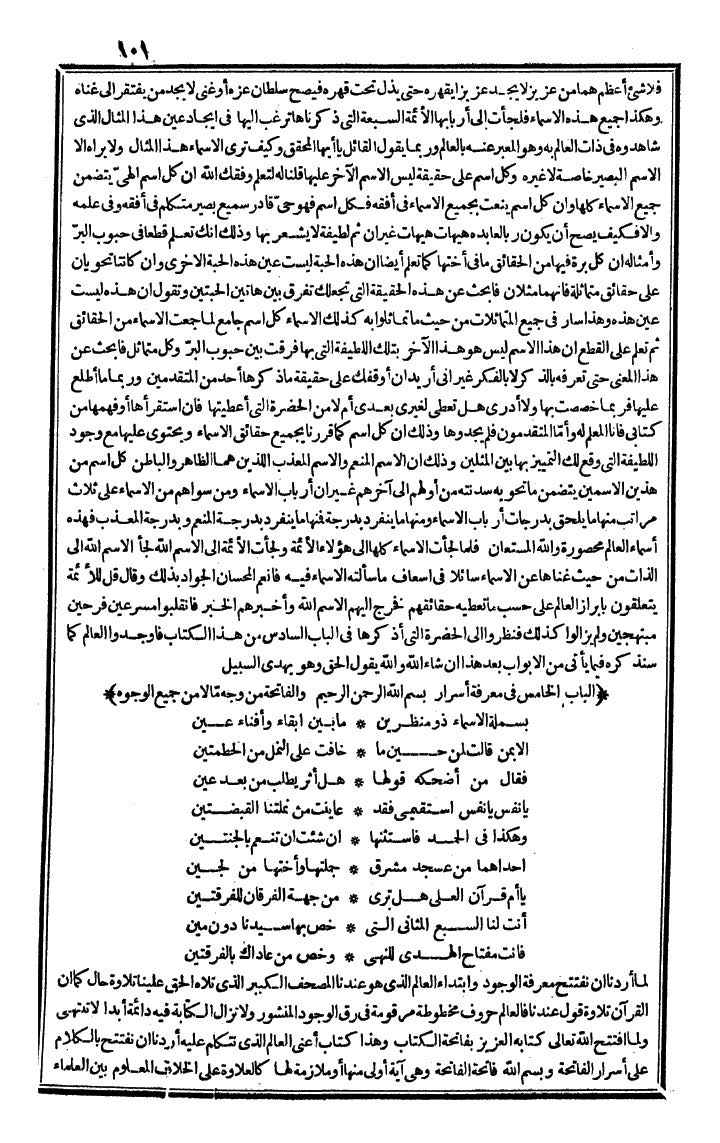 ١٠١
فلا شئ أعظم همامن عزيز لا يجد عزيزا يقهره حتى يذل تحت قهره فيصح سلطان عزه أو غنى لا يجد من يفتقر الى غناه
وهكذا جميع هذه الاسماء فلجأت الى أربابها الأئمة السبعة التى ذكرناها ترغب اليها فى ايجاد عين هذا المثال الذى
شاهدوه فى ذات العالم به وهو المعبر عنه بالعالم وربما يقول القائل يا أيها المحقق وكيف ترى الاسماء هذا المثال ولا يراه الا
الاسم البصير خاصة لا غيره وكل اسم على حقيقة ليس الاسم الآخر عليها قلنا له لتعلم وفقك الله ان كل اسم الهىّ يتضمن
جميع الاسماء كلها وان كل اسم ينعت بجميع الاسماء فى أفقه فكل اسم فهو حىّ قادر سميع بصير متكلم فى أفقه وفى علمه
والا فكيف يصح أن يكون ربا لعابده هيهات هيهات غير ان ثم لطيفة لا يشعر بها وذلك انك تعلم قطعا فى حبوب البرّ
وأمثاله ان كل برة فيها من الحقائق ما فى أختها كما تعلم أيضا ان هذه الحبة ليست عين هذه الحبة الاخرى وان كانتا تحويان
على حقائق متماثلة فانهما مثلان فابحث عن هذه الحقيقة التى تجعلك تفرق بين هاتين الحبتين وتقول ان هذه ليست
عين هذه وهذا سار فى جميع المتماثلات من حيث ما تماثلوا به كذلك الاسماء كل اسم جامع لما جمعت الاسماء من الحقائق
ثم تعلم على القطع ان هذا الاسم ليس هو هذا الآخر بتلك اللطيفة التى بها فرقت بين حبوب البرّ وكل متماثل فابحث عن
هذا المعنى حتى تعرفه بالذكر لا بالفكر غير انى أريد ان أوقفك على حقيقة ما ذكرها أحد من المتقدمين وربما ما أطلع
عليها فربما خصصت بها ولا أدرى هل تعطى لغيرى بعدى أم لا من الحضرة التى أعطيتها فان استقرأها أو فهمها من
كتابى فانا المعلم له وأمّا المتقدمون فلم يجدوها وذلك ان كل اسم كما قررنا يجميع حقائق الاسماء ويحتوى عليها مع وجود
اللطيفة التى وقع لك التمييز بها بين المثلين وذلك ان الاسم المنعم والاسم المعذب اللذين هما الظاهر والباطن كل اسم من
هذين الاسمين يتضمن ما تحويه سدنته من أولهم الى آخرهم غير ان أرباب الاسماء ومن سواهم من الاسماء على ثلاث
مراتب منها ما يلحق بدرجات أرباب الاسماء ومنها ما ينفرد بدرجة فنها ما ينفرد بدرجة المنعم وبدرجة المعذب فهذه
أسماء العالم محصورة والله المستعان فلما لجأت الاسماء كلها الى هؤلاء الأئمة ولجأت الأئمة الى الاسم الله لجأ الاسم الله الى
الذات من حيث غناها عن الاسماء سائلا فى اسعاف ما سألته الاسماء فيه فانعم المحسان الجواد بذلك وقال قل للأئمة
يتعلقون بابراز العالم على حسب ما تعطيه حقائقهم فخرج اليهم الاسم الله وأخبرهم الخبر فانقلبوا مسرعين فرحين
مبتهجين ولم يزالوا كذلك فنظروا الى الحضرة التى أذكرها فى الباب السادس من هذا الكتاب فاوجدوا العالم كما
سنذكره فيما يأتى من الابواب بعد هذا ان شاء الله والله يقول الحق وهو يهدى السبيل
﴿الباب الخامس فى معرفة أسرار بسم الله الرحمن الرحيم والفاتحة من وجه مّا لا من جميع الوجوه﴾
بسملة الاسماء ذو منظرين * ما بين ابقاء وأفناء عين
الا بمن قالت لمن حين ما * خافت على النمل من الحطمتين
فقال من أضحكه قولها * هل أثر يطلب من بعد عين
يا نفس يا نفس استقيمى فقد * عاينت من نملتنا القبضتين
وهكذا فى الحمد فاستثنها * ان شئت ان تنعم بالجنتين
احداهما من عسجد مشرق * جملتها وأختها من لجين
يا أم قرآن العلى هل ترى * من جهة الفرقان للفرقتين
أنت لنا السبع المثانى التى * خص بها سيدنا دون مين
فانت مفتاح الهدى للنهى * وخص من عاداك بالفرقتين
لما أردنا ان نفتتح معرفة الوجود وابتداء العالم الذى هو عندنا المصحف الكبير الذى تلاه الحق علينا تلاوة حال كما ان
القرآن تلاوة قول عندنا فالعالم حروف مخطوطة مرقومة فى رق الوجود المنشور ولا تزال الكتابة فيه دائمة أبدا لا تنتهى
ولما افتتح الله تعالى كتابه العزيز بفاتحة الكتاب وهذا كتاب أعنى العالم الذى نتكلم عليه أردنا ان نفتتح بالكلام
على أسرار الفاتحة وبسم الله فاتحة الفاتحة وهى آية أولى منها أو ملازمة لها كالعلاوة على الخلاف المعلوم بين العلماء